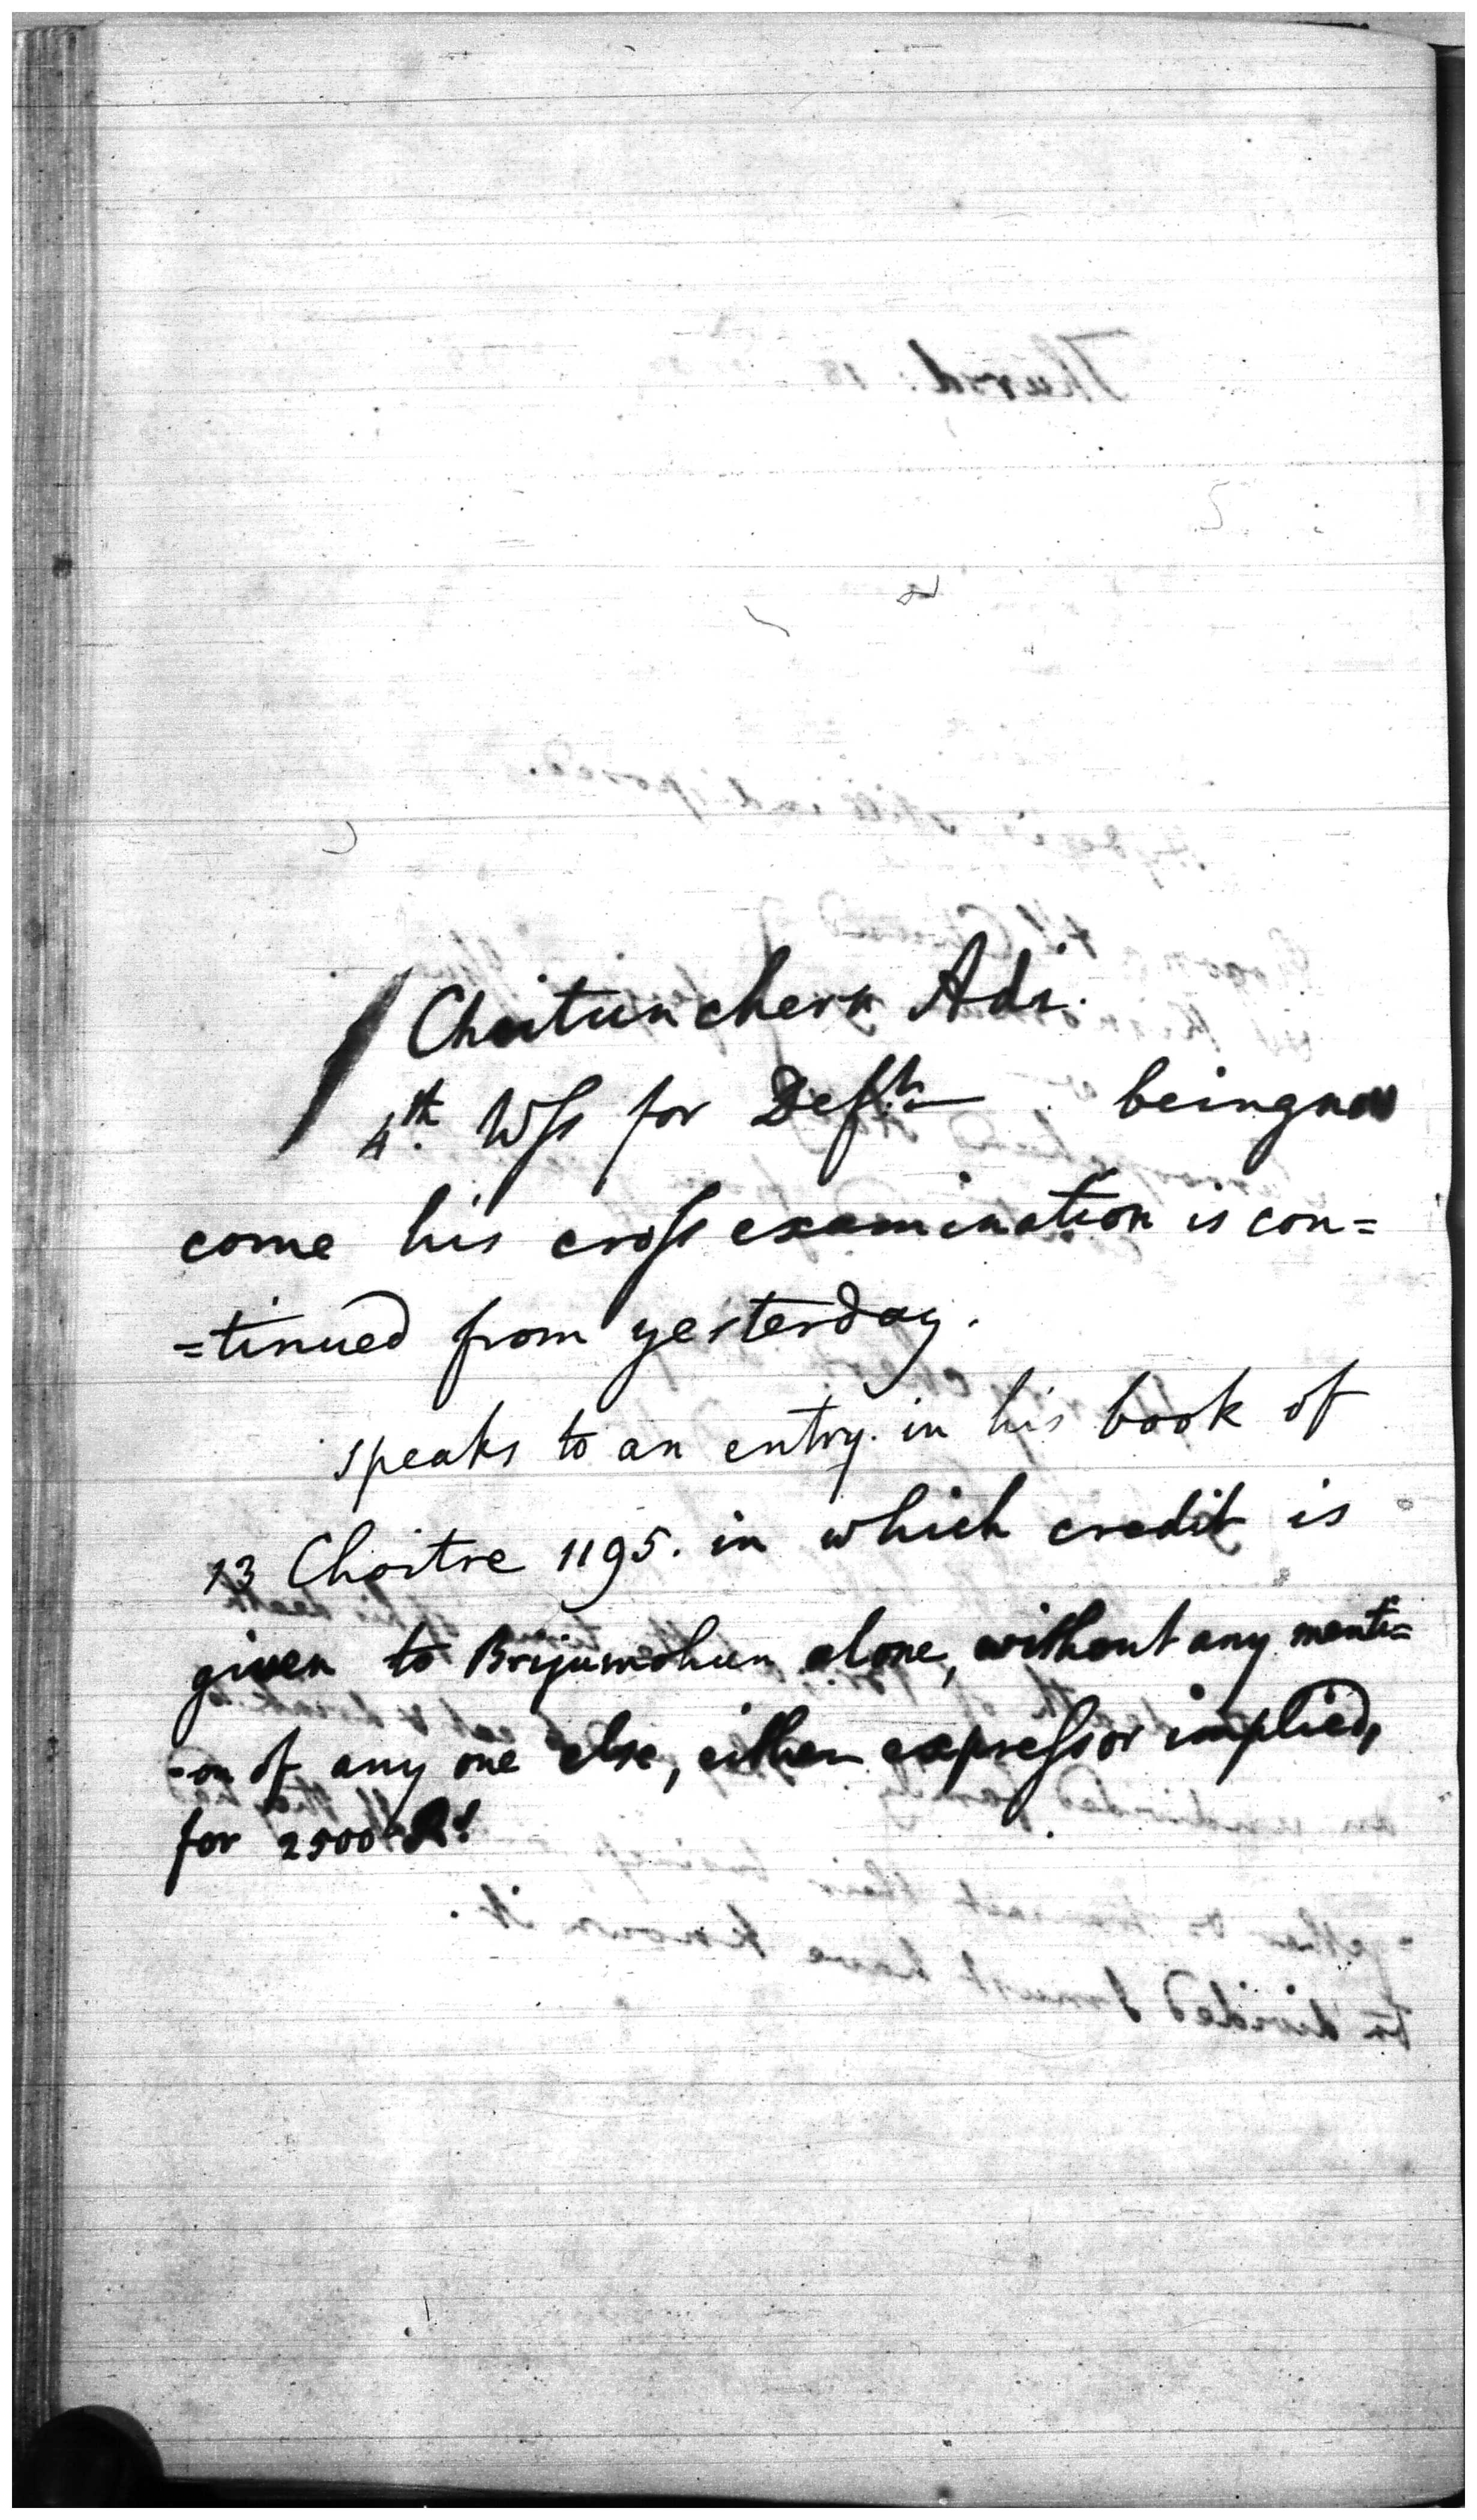 Choitunchern Adr.
4th. Wss for Defts. being now
come his cross examination is con=
=tinued from yesterday.
speaks to an entry in his book of
13 Choitre 1195. in which credit is
given to Brijumohun alone, without any menti=
-on of any one else, either express or implied,
for 2500 Rs.